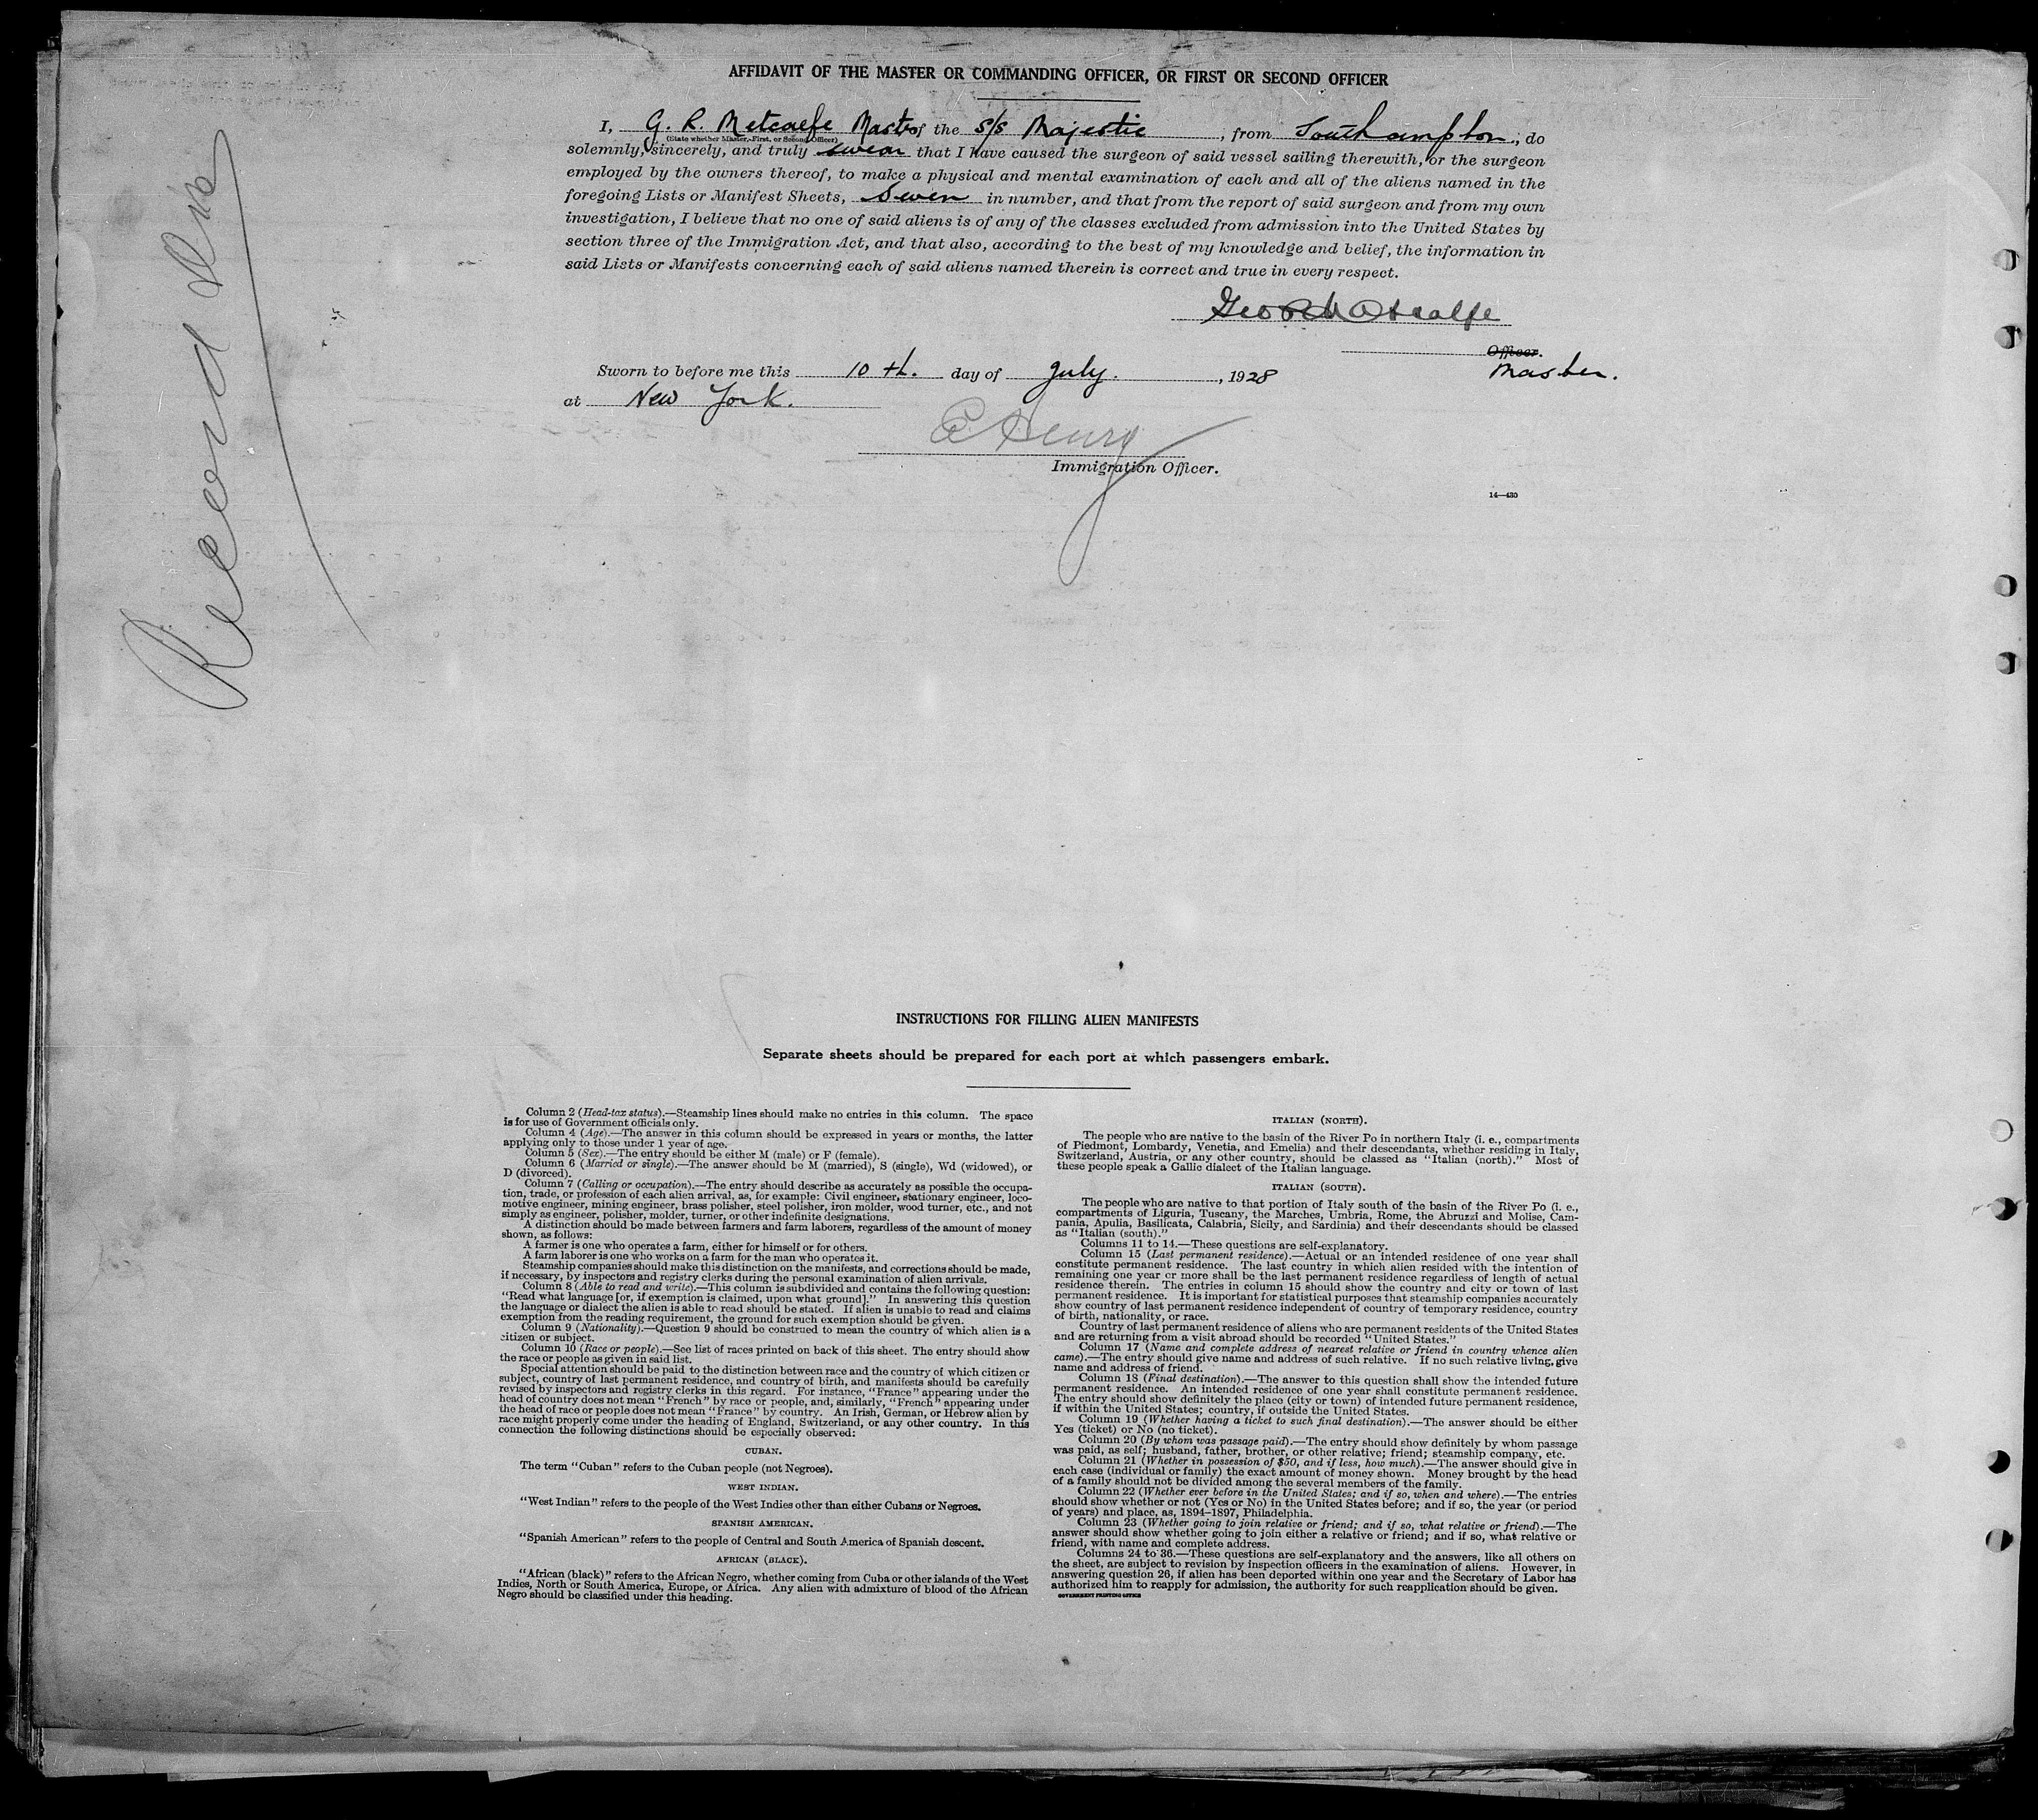 AFFIDAVIT OF THE MASTER OR COMMANDING OFFICER, OR FIRST OR SECOND OFFICER
I, G. R. Metcalfe Master of the S/S Majestic, from Southampton, do
(State whether Master, First, or Second Officer)
solemnly, sincerely, and truly swear that I have caused the surgeon of said vessel sailing therewith, or the surgeon
employed by the owners thereof, to make a physical and mental examination of each and all of the aliens named in the
foregoing Lists or Manifest Sheets, Seven in number, and that from the report of said surgeon and from my own
investigation, I believe that no one of said aliens is of any of the classes excluded from admission into the United States by
section three of the Immigration Act, and that also, according to the best of my knowledge and belief, the information in
said Lists or Manifests concerning each of said aliens named therein is correct and true in every respect.
Geo R Metcalfe
Officer.
Master.
Sworn to before me this 10th. day of July., 1928
at New York.
Henry
Immigration Officer.
14—430
Record
INSTRUCTIONS FOR FILLING ALIEN MANIFESTS
Separate sheets should be prepared for each port at which passengers embark.
Column 2 (Head-tax status).—Steamship lines should make no entries in this column. The space
is for use of Government officials only.
Column 4 (Age).—The answer in this column should be expressed in years or months, the latter
applying only to those under 1 year of age.
Column 5 (Sex).—The entry should be either M (male) or F (female).
Column 6 (Married or single).—The answer should be M (married), S (single), Wd (widowed), or
D (divorced).
Column 7 (Calling or occupation).—The entry should describe as accurately as possible the occupa-
tion, trade, or profession of each alien arrival, as, for example: Civil engineer, stationary engineer, loco-
motive engineer, mining engineer, brass polisher, steel polisher, iron molder, wood turner, etc., and not
simply as engineer, polisher, molder, turner, or other indefinite designations.
A distinction should be made between farmers and farm laborers, regardless of the amount of money
shown, as follows:
A farmer is one who operates a farm, either for himself or for others.
A farm laborer is one who works on a farm for the man who operates it.
Steamship companies should make this distinction on the manifests, and corrections should be made,
if necessary, by inspectors and registry clerks during the personal examination of alien arrivals.
Column 8 (Able to read and write).—This column is subdivided and contains the following question:
"Read what language [or, if exemption is claimed, upon what ground]." In answering this question
the language or dialect the alien is able to read should be stated. If alien is unable to read and claims
exemption from the reading requirement, the ground for such exemption should be given.
Column 9 (Nationality).—Question 9 should be construed to mean the country of which alien is a
citizen or subject.
Column 10 (Race or people).—See list of races printed on back of this sheet. The entry should show
the race or people as given in said list.
Special attention should be paid to the distinction between race and the country of which citizen or
subject, country of last permanent residence, and country of birth, and manifests should be carefully
revised by inspectors and registry clerks in this regard. For instance, "France" appearing under the
head of country does not mean "French" by race or people, and, similarly, "French" appearing under
the head of race or people does not mean "France" by country. An Irish, German, or Hebrew alien by
race might properly come under the heading of England, Switzerland, or any other country. In this
connection the following distinctions should be especially observed:
CUBAN.
The term "Cuban" refers to the Cuban people (not Negroes).
WEST INDIAN.
"West Indian" refers to the people of the West Indies other than either Cubans or Negroes.
SPANISH AMERICAN.
"Spanish American" refers to the people of Central and South America of Spanish descent.
AFRICAN (BLACK).
"African (black)" refers to the African Negro, whether coming from Cuba or other islands of the West
Indies, North or South America, Europe, or Africa. Any alien with admixture of blood of the African
Negro should be classified under this heading.
ITALIAN (NORTH).
The people who are native to the basin of the River Po in northern Italy (i. e., compartments
of Piedmont, Lombardy, Venetia, and Emelia) and their descendants, whether residing in Italy,
Switzerland, Austria, or any other country, should be classed as "Italian (north)." Most of
these people speak a Gallic dialect of the Italian language.
ITALIAN (SOUTH).
The people who are native to that portion of Italy south of the basin of the River Po (i. e.,
compartments of Liguria, Tuscany, the Marches, Umbria, Rome, the Abruzzi and Molise, Cam-
pania, Apulia, Basilicata, Calabria, Sicily, and Sardinia) and their descendants should be classed
as "Italian (south)."
Columns 11 to 14.—These questions are self-explanatory.
Column 15 (Last permanent residence).—Actual or an intended residence of one year shall
constitute permanent residence. The last country in which alien resided with the intention of
remaining one year or more shall be the last permanent residence regardless of length of actual
residence therein. The entries in column 15 should show the country and city or town of last
permanent residence. It is important for statistical purposes that steamship companies accurately
show country of last permanent residence independent of country of temporary residence, country
of birth, nationality, or race.
Country of last permanent residence of aliens who are permanent residents of the United States
and are returning from a visit abroad should be recorded "United States."
Column 17 (Name and complete address of nearest relative or friend in country whence alien
came).—The entry should give name and address of such relative. If no such relative living, give
name and address of friend.
Column 18 (Final destination).—The answer to this question shall show the intended future
permanent residence. An intended residence of one year shall constitute permanent residence.
The entry should show definitely the place (city or town) of intended future permanent residence,
if within the United States; country, if outside the United States.
Column 19 (Whether having a ticket to such final destination).—The answer should be either
Yes (ticket) or No (no ticket).
Column 20 (By whom was passage paid).—The entry should show definitely by whom passage
was paid, as self; husband, father, brother, or other relative; friend; steamship company, etc.
Column 21 (Whether in possession of $50, and if less, how much).—The answer should give in
each case (individual or family) the exact amount of money shown. Money brought by the head
of a family should not be divided among the several members of the family.
Column 22 (Whether ever before in the United States; and if so, when and where).—The entries
should show whether or not (Yes or No) in the United States before; and if so, the year (or period
of years) and place, as, 1894–1897, Philadelphia.
Column 23 (Whether going to join relative or friend; and if so, what relative or friend).—The
answer should show whether going to join either a relative or friend; and if so, what relative or
friend, with name and complete address.
Columns 24 to 36.—These questions are self-explanatory and the answers, like all others on
the sheet, are subject to revision by inspection officers in the examination of aliens. However, in
answering question 26, if alien has been deported within one year and the Secretary of Labor has
authorized him to reapply for admission, the authority for such reapplication should be given.
GOVERNMENT PRINTING OFFICE